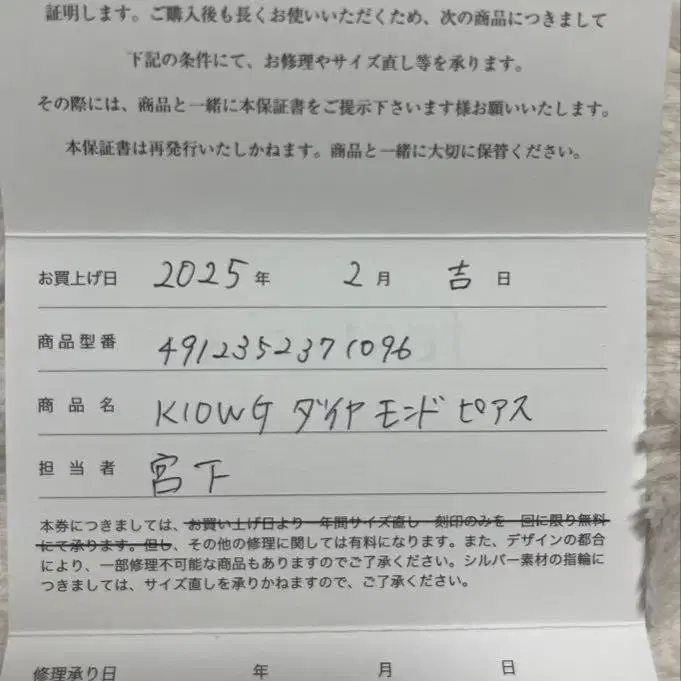 証明します。ご購入後も長くお使いいただくため、次の商品につきまして
下記の条件にて、お修理やサイズ直し等を承ります。
その際には、商品と一緒に本保証書をご提示下さいます様お願いいたします。
本保証書は再発行いたしかねます。商品と一緒に大切に保管ください。
お買上げ日 2025 年 2 月 吉 日
商品型番 4912352371096
商品名 K10WG ダイヤモンドピアス
担当者 宮下
本券につきましては、お買い上げ日より一年間サイズ直し・刻印のみを一回に限り無料
にて承ります。但し、その他の修理に関しては有料になります。また、デザインの都合
により、一部修理不可能な商品もありますのでご了承ください。シルバー素材の指輪に
つきましては、サイズ直しを承りかねますので、ご了承ください。
修理承り日 年 月 日